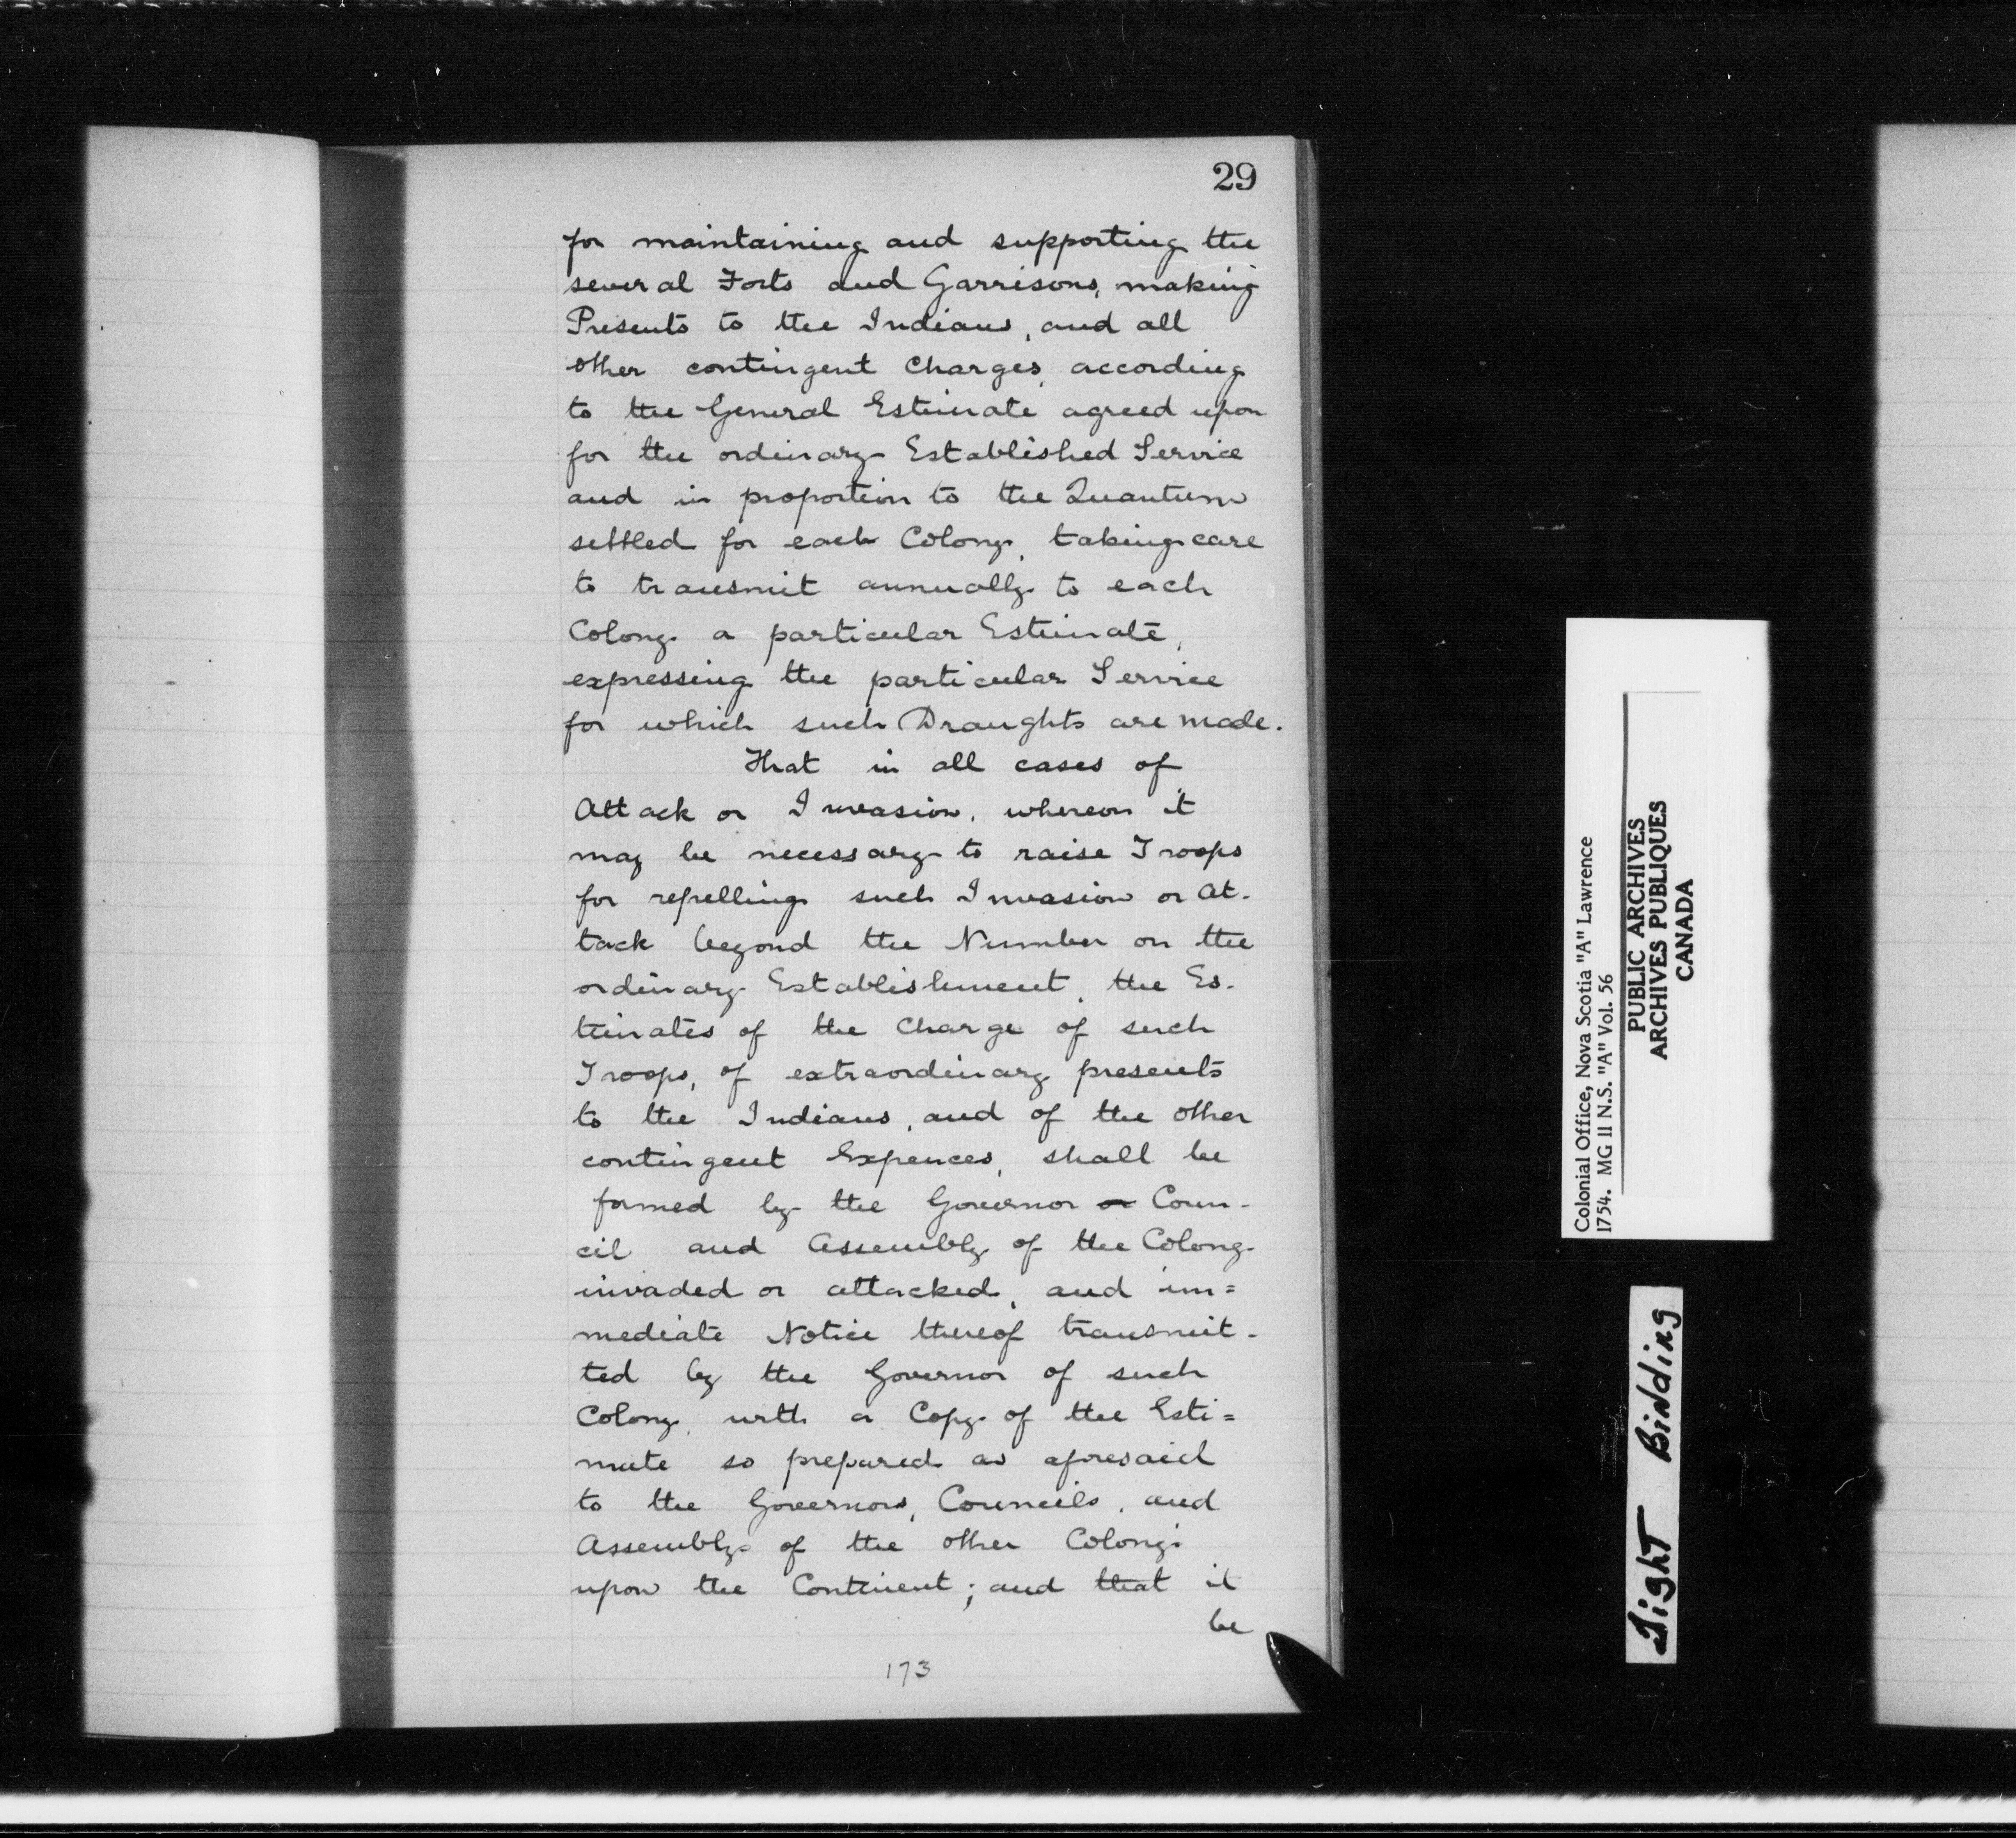 29
for maintaining and supporting the
several Forts and Garrisons, making
Presents to the Indians, and all
other contingent Charges, according
to the General Estimate agreed upon
for the ordinary Established Service
and in proportion to the Quantum
settled for each Colony, taking care
to transmit annually to each
Colony a particular Estimate,
expressing the particular Service
for which such Draughts are made.
That in all cases of
Attack or Invasion, whereon it
may be necessary to raise Troops
for repelling such Invasion or At-
tack beyond the Number on the
ordinary Establishment, the Es-
timates of the Charge of such
Troops, of extraordinary presents
to the Indians, and of the other
contingent Expences, shall be
formed by the Governor or Coun-
cil and Assembly of the Colony
invaded or attacked, and im=
mediate Notice thereof transmit-
ted by the Governor of such
Colony, with a Copy of the Esti=
mate so prepared as aforesaid
to the Governors, Councils, and
Assembly of the other Colony:
upon the Continent; and that it
be
173
Colonial Office, Nova Scotia "A" Lawrence
1754. MG 11 N.S. "A" Vol. 56
PUBLIC ARCHIVES
ARCHIVES PUBLIQUES
CANADA
Tight Binding